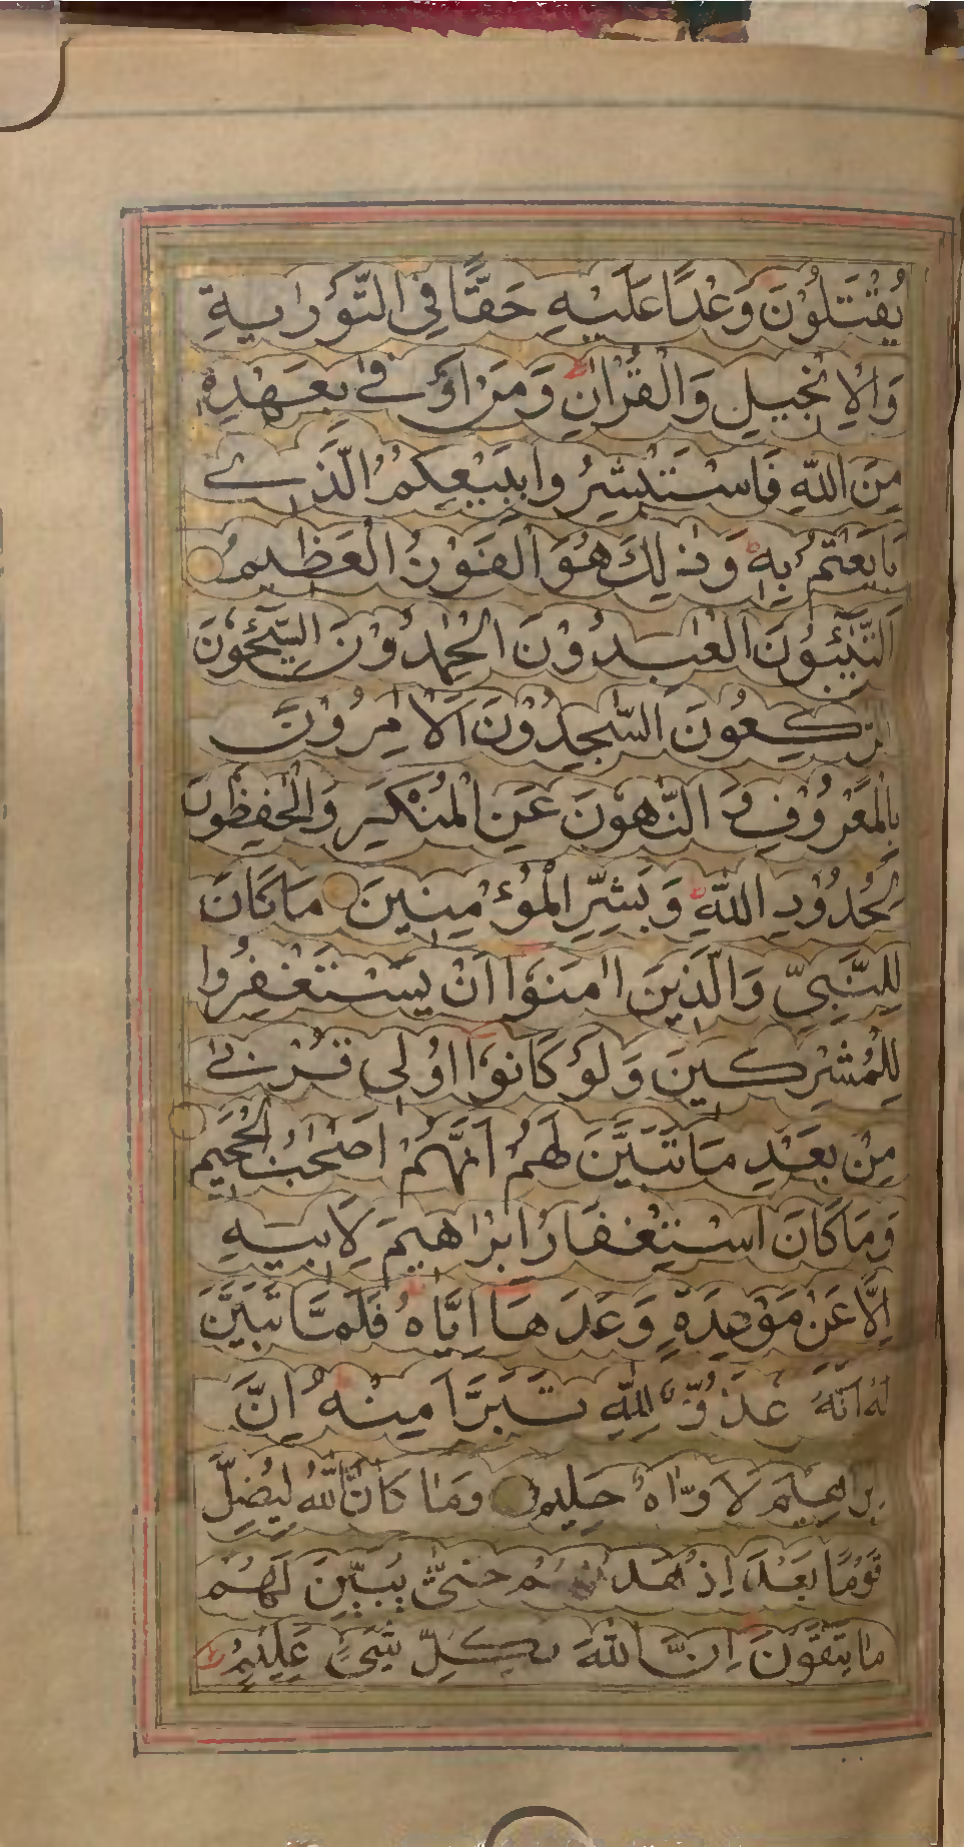 يُقْتَلُوْنَ وَعْدًا عَلَيْهِ حَقًّا فِى التَّوْرٰىةِ
وَالْاِنْجِيلِ وَالْقُرْاٰنِ وَمَنْ اَوْفٰى بِعَهْدِهٖ
مِنَ اللّٰهِ فَاسْتَبْشِرُوا بِبَيْعِكُمُ الَّذِى
بَايَعْتُمْ بِهٖ وَذٰلِكَ هُوَ الْفَوْزُ الْعَظِيمُ
اَلتَّآئِبُوْنَ الْعٰبِدُوْنَ الْحٰمِدُوْنَ السَّآئِحُوْنَ
الرّٰكِعُونَ السّٰجِدُوْنَ الْاٰمِرُوْنَ
بِالْمَعْرُوْفِ وَالنَّاهُوْنَ عَنِ الْمُنْكَرِ وَالْحٰفِظُوْنَ
لِحُدُوْدِ اللّٰهِ وَبَشِّرِ الْمُؤْمِنِينَ مَا كَانَ
لِلنَّبِىِّ وَالَّذِيْنَ اٰمَنُوْا اَنْ يَسْتَغْفِرُوا
لِلْمُشْرِكِينَ وَلَوْ كَانُوْا اُولِى قُرْبٰى
مِنْ بَعْدِ مَا تَبَيَّنَ لَهُمْ اَنَّهُمْ اَصْحٰبُ الْجَحِيمِ
وَمَا كَانَ اسْتِغْفَارُ اِبْرٰاهِيمَ لِاَبِيهِ
اِلَّا عَنْ مَوْعِدَةٍ وَعَدَهَا اِيَّاهُ فَلَمَّا تَبَيَّنَ
لَهُ اَنَّهُ عَدُوٌّ لِلّٰهِ تَبَرَّاَ مِنْهُ اِنَّ
اِبْرَاهِيْمَ لَاَوَّاهٌ حَلِيمٌ وَمَا كَانَ اللّٰهُ لِيُضِلَّ
قَوْمًا بَعْدَ اِذْ هَدٰىهُمْ حَتّٰى يُبَيِّنَ لَهُمْ
مَا يَتَّقُوْنَ اِنَّ اللّٰهَ بِكُلِّ شَىْءٍ عَلِيْمٌ